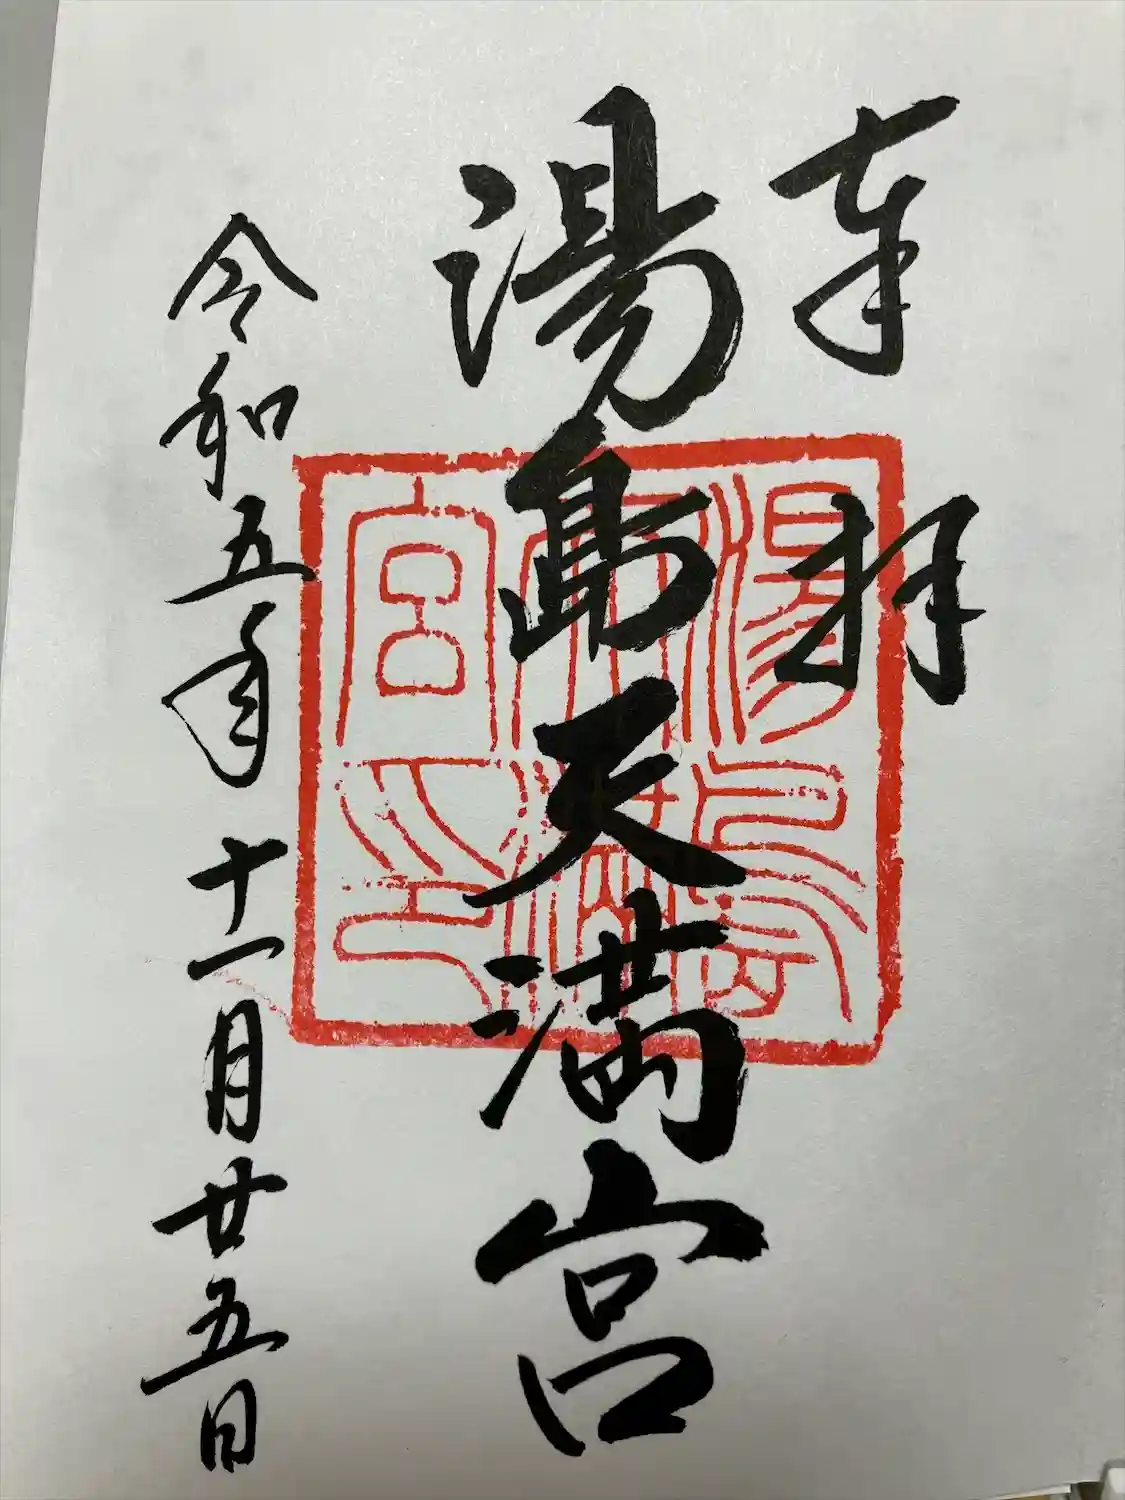 奉拝
湯島天満宮
令和五年十一月廿五日
湯島神社
天満
宮之印